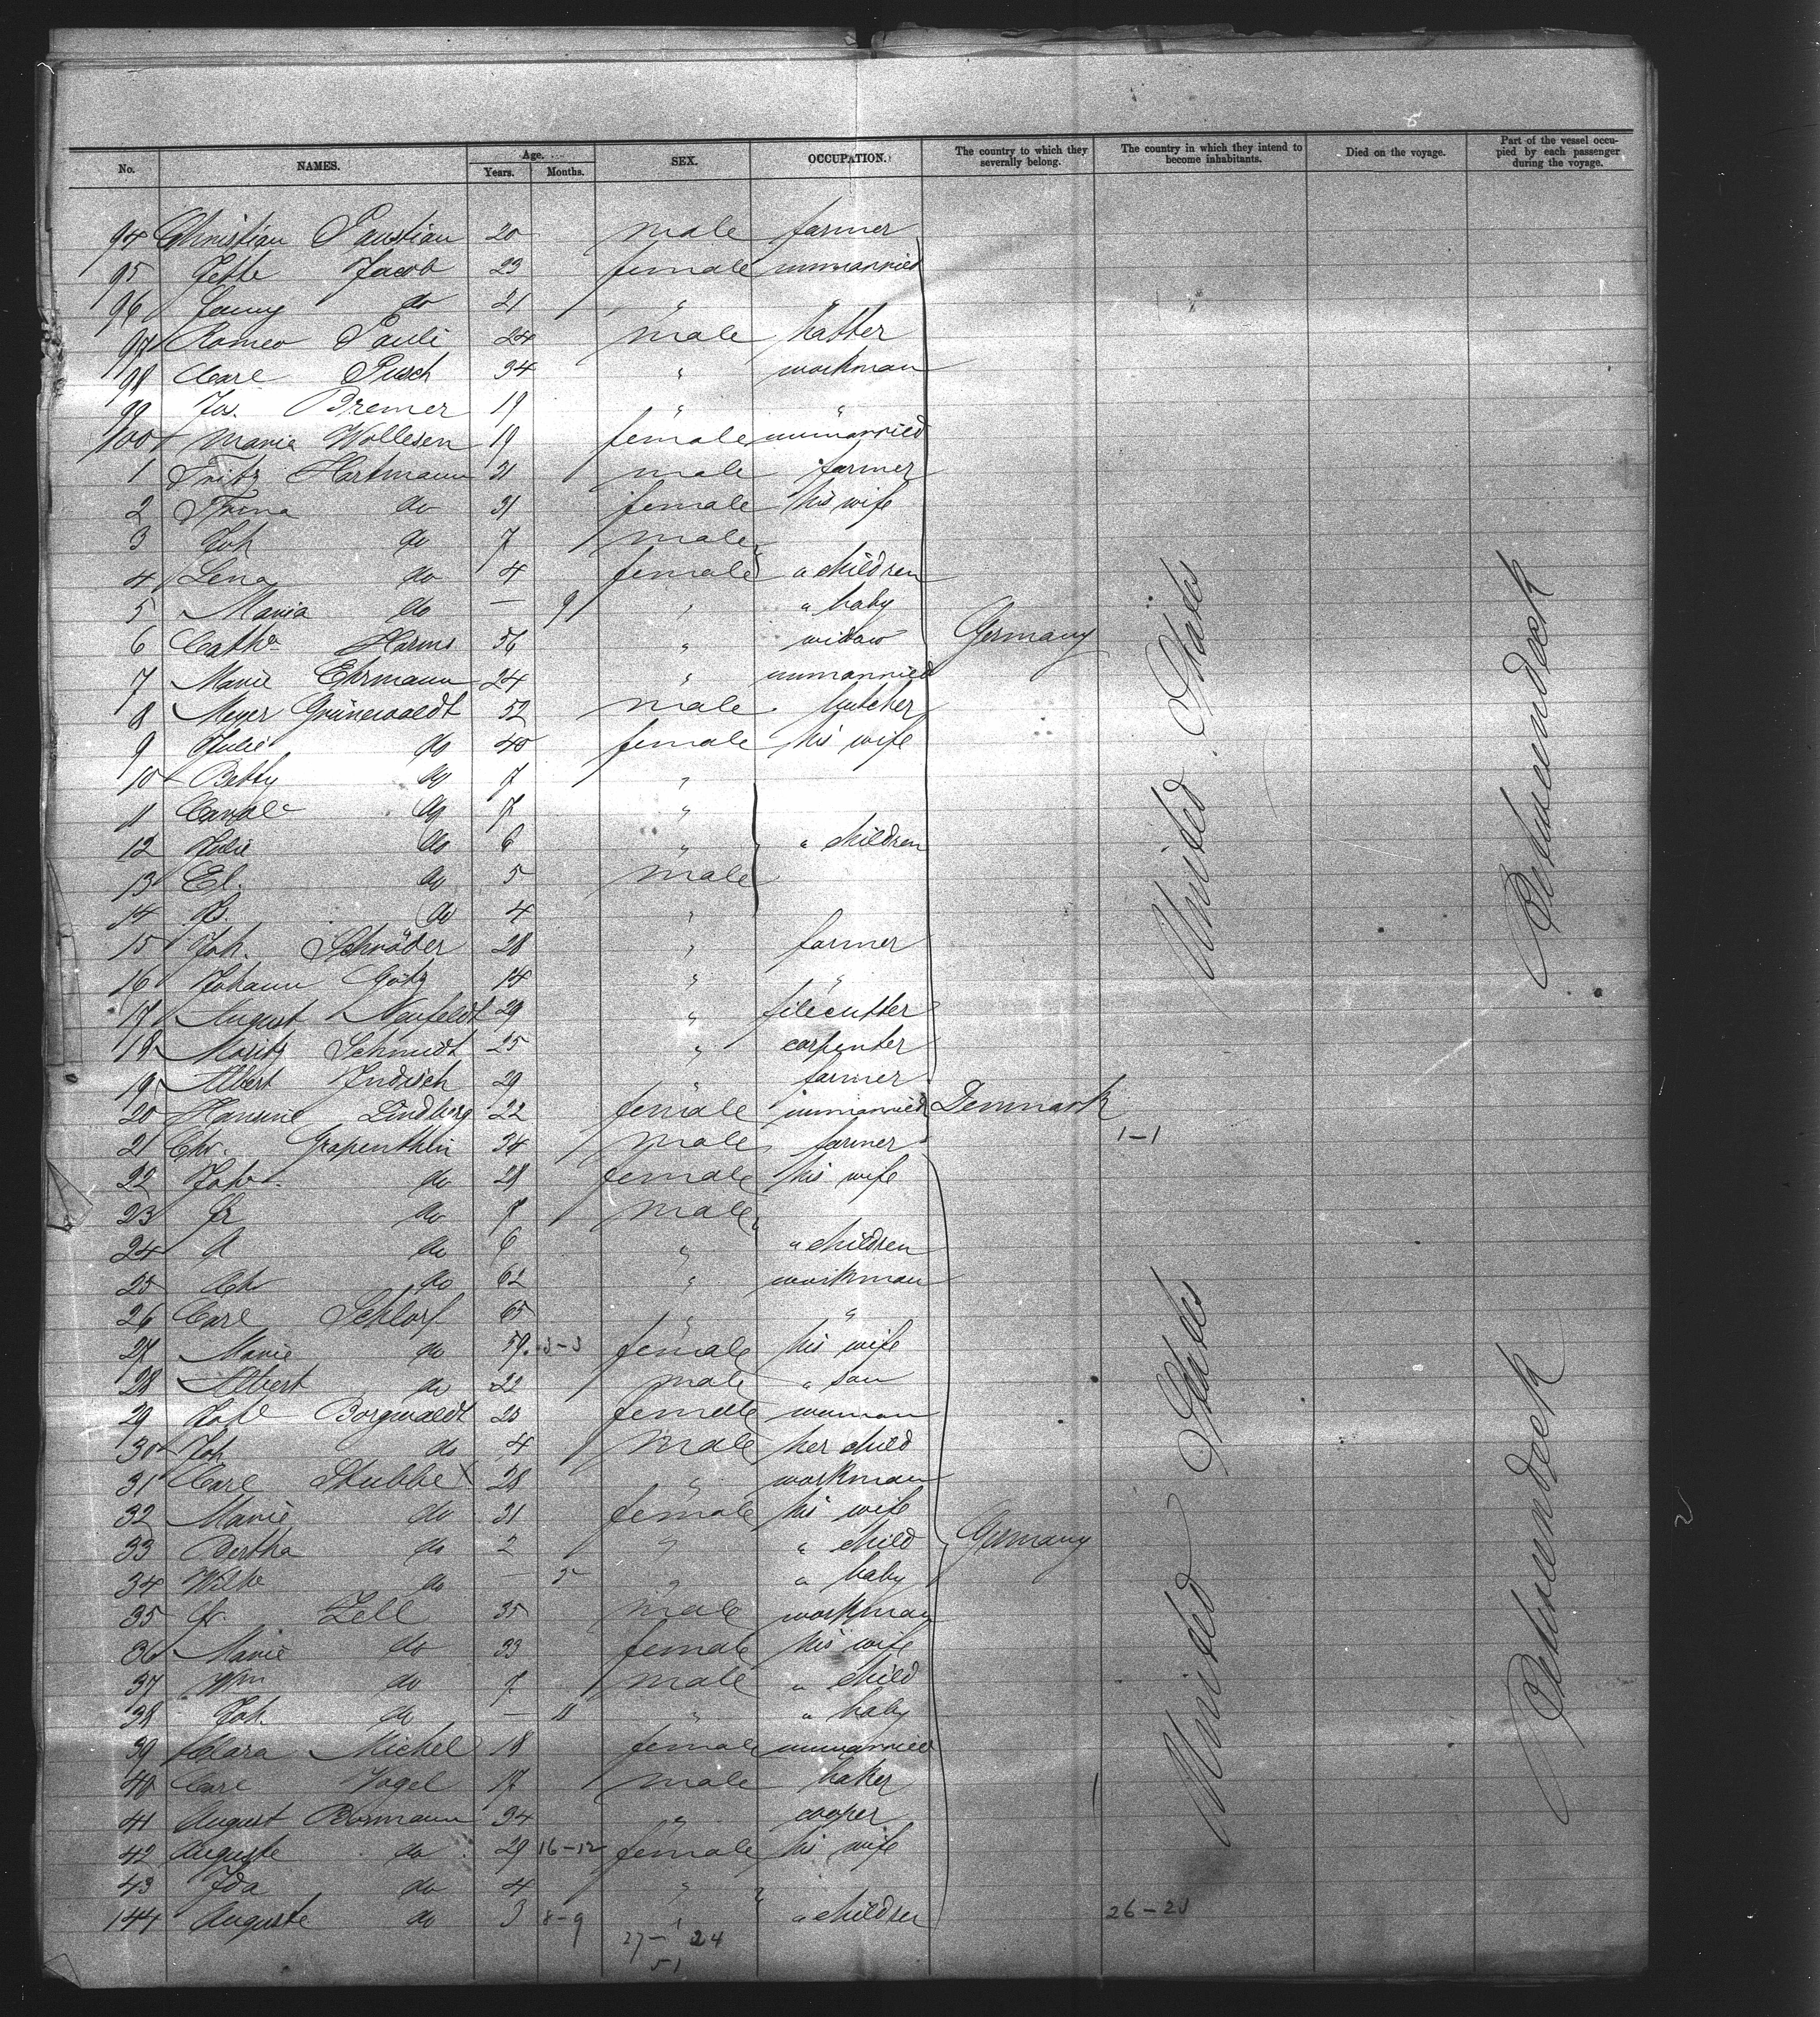 No. NAMES. Age. Years. Months. SEX. OCCUPATION. The country to which they severally belong. The country in which they intend to become inhabitants. Died on the voyage. Part of the vessel occupied by each passenger during the voyage.
94 Christian Paustian 20 male farmer
95 Jette Jacob 23 female unmarried
96 Fanny do 21 " "
97 Romeo Pauli 24 male hatter
98 Carl Pusch 34 " workman
99 Jos. Bremer 19 " "
100 Maria Wollesen 19 female unmarried
1 Fritz Hartmann 31 male farmer
2 Trina do 31 female his wife
3 Joh do 7 male
4 Lena do 4 female " children
5 Maria do — 9 " " baby
6 Catha Harms 56 " widow Germany
7 Marie Ehrmann 24 " unmarried
8 Meyer Grünewaldt 52 male butcher
9 Julie do 40 female his wife
10 Betty do 7 "
11 do 7 "
12 Julie do 6 " " children
13 El. do 5 male
14 do 4 "
15 Joh. Schröder 28 " farmer
16 Johann Götz 14 " "
17 August Neufeldt 29 " filecutter
18 Moritz Schmidt 25 " carpenter
19 Albert Indisch 29 " farmer
20 Hansine Lindberg 22 female unmarried Denmark
1-1
21 Chr. Grapenthin 34 male farmer
22 Joha. do 28 female his wife
23 Fr do 7 male
24 A do 6 " " children
25 Ch do 62 " workman
26 Carl Schlorf 65 " "
27 Marie do 59 3-3 female his wife
28 Albert do 22 male " son
29 Borgwaldt 20 female woman
30 Joh do 4 male her child
31 Carl Stubbe X 28 " workman
32 Marie do 31 female his wife
33 Bertha do 2 " " child Germany
34 do — 5 " " baby
35 Fr. Zell 35 male workman
36 Marie do 33 female his wife
37 Wm do 7 male " child
38 Joh. do — 11 " " baby
39 Clara Michel 18 female unmarried
40 Carl Vogel 17 male baker
41 August Bormann 34 " cooper
42 Auguste do 29 16-12 female his wife
43 Ida do 4 "
144 Auguste do 3 8-9 " " children 26-2
27-24
51
United States
Betweendeck
United States
Betweendeck